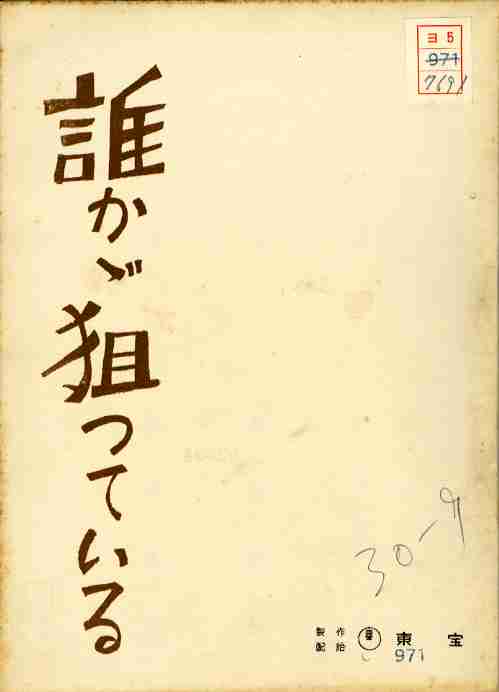 誰かゞ狙つている
ヨ5
971
7691
30-9
製作
配給
東宝
971